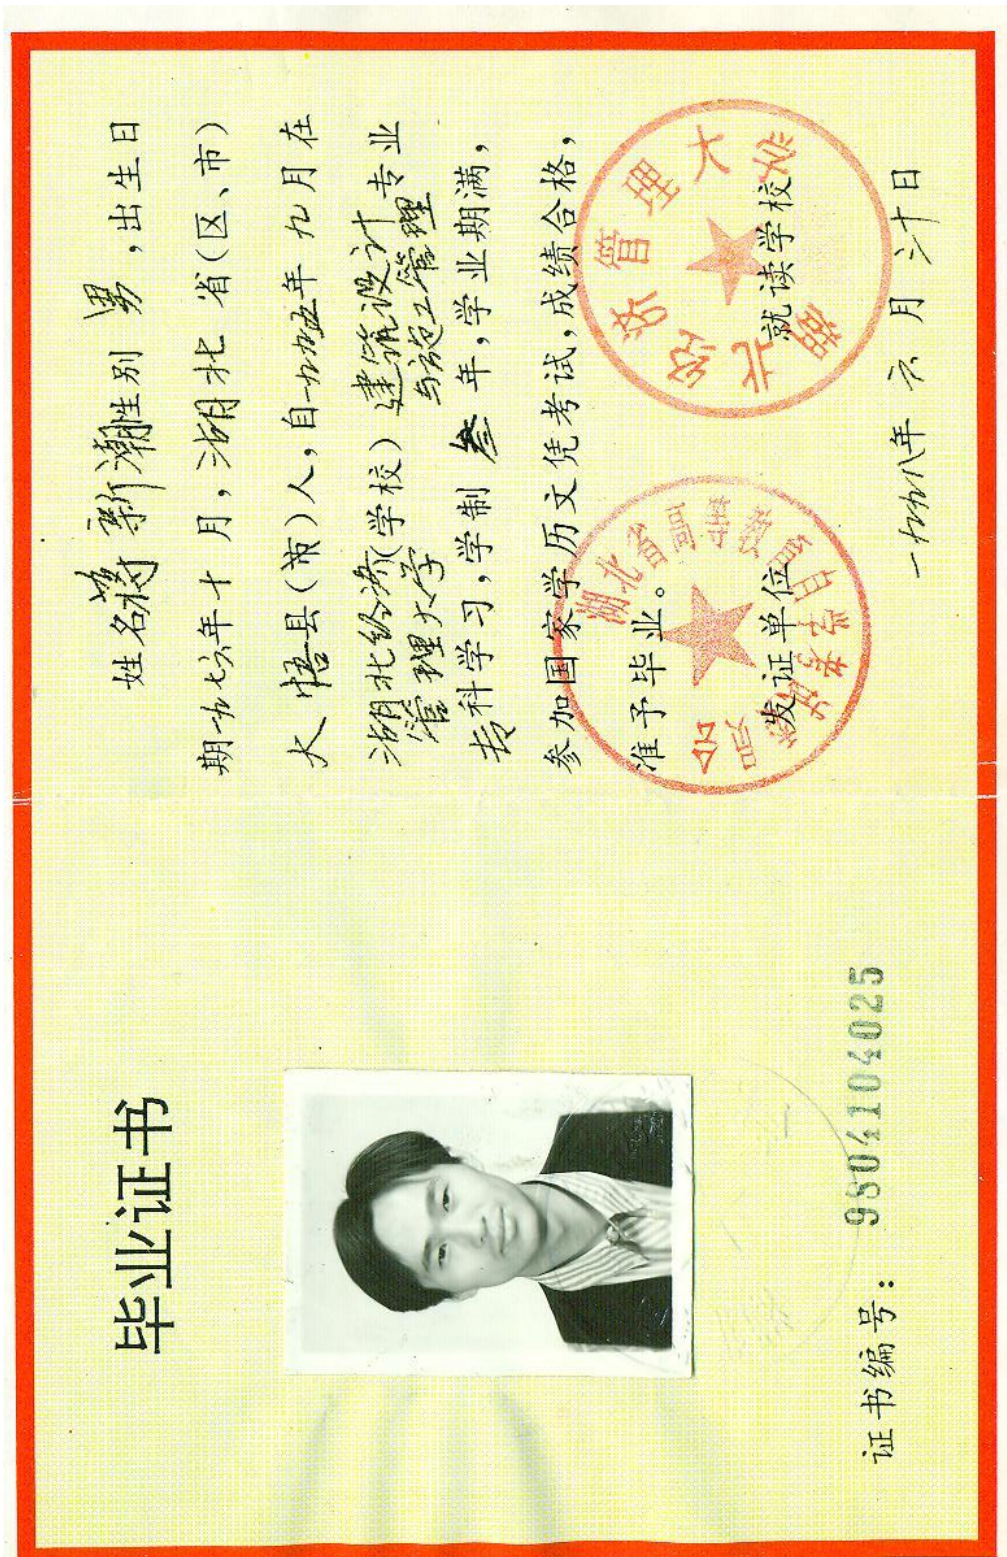 毕业证书
证书编号：9804104025
姓名蒋新潮性别 男，出生日
期一九七六年十月，湖北省（区、市）
大悟县（市）人，自一九九五年九月在
湖北经济管理大学（学校）建筑设计与施工管理专业
专科学习，学制 叁 年，学业期满，
参加国家学历文凭考试，成绩合格，
准予毕业。
湖北省高等教育自学考试委员会
发证单位
湖北经济管理大学
就读学校
一九九八年 六 月 三十日